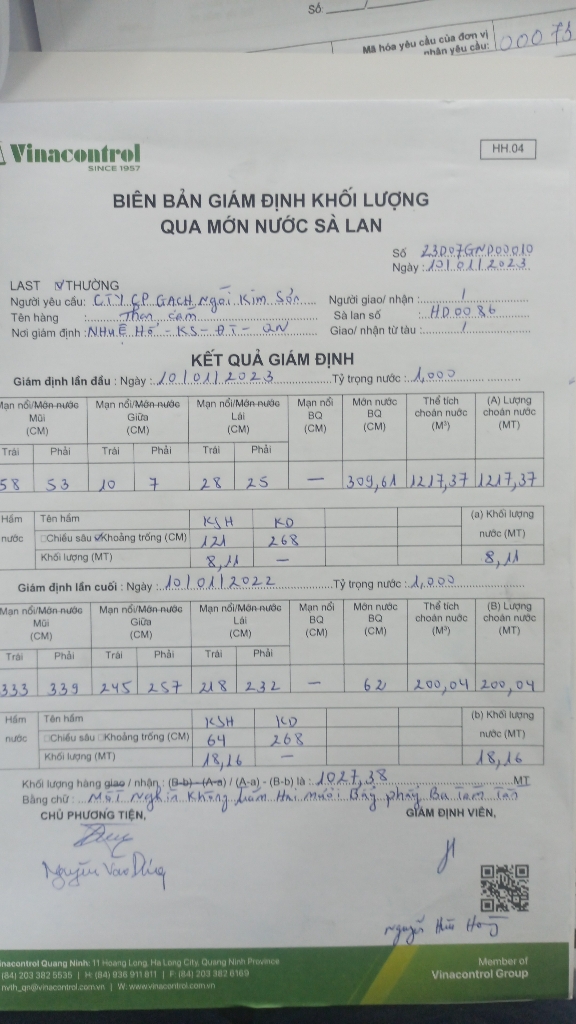 Số:
Mã hóa yêu cầu của đơn vị
nhận yêu cầu: 00073
Vinacontrol
SINCE 1957
HH.04
BIÊN BẢN GIÁM ĐỊNH KHỐI LƯỢNG
QUA MỚN NƯỚC SÀ LAN
Số 23D07GND00010
Ngày: 10/01/2023
LAST THƯỜNG
Người yêu cầu: CTY CP GẠCH Ngói Kim Sơn Người giao/ nhận: /
Tên hàng: Than cám Sà lan số: HD0086
Nơi giám định: NHUỆ HỔ - KS - ĐT - QN Giao/ nhận từ tàu: /
KẾT QUẢ GIÁM ĐỊNH
Giám định lần đầu: Ngày: 10/01/2023 Tỷ trọng nước: 1,000
Mạn nổi/Mớn nước Mũi (CM) Mạn nổi/Mớn nước Giữa (CM) Mạn nổi/Mớn nước Lái (CM) Mạn nổi BQ (CM) Mớn nước BQ (CM) Thể tích choán nước (M³) (A) Lượng choán nước (MT)
Trái Phải Trái Phải Trái Phải
58 53 10 7 28 25 — 309,61 1217,37 1217,37
Hầm nước Tên hầm KSH KD (a) Khối lượng nước (MT)
Chiều sâu Khoảng trống (CM) 121 268
Khối lượng (MT) 8,11 — 8,11
Giám định lần cuối: Ngày: 10/01/2022 Tỷ trọng nước: 1,000
Mạn nổi/Mớn nước Mũi (CM) Mạn nổi/Mớn nước Giữa (CM) Mạn nổi/Mớn nước Lái (CM) Mạn nổi BQ (CM) Mớn nước BQ (CM) Thể tích choán nước (M³) (B) Lượng choán nước (MT)
Trái Phải Trái Phải Trái Phải
333 339 245 257 218 232 — 62 200,04 200,04
Hầm nước Tên hầm KSH KD (b) Khối lượng nước (MT)
Chiều sâu Khoảng trống (CM) 64 268
Khối lượng (MT) 18,16 — 18,16
Khối lượng hàng giao / nhận: (B-b) - (A-a) / (A-a) - (B-b) là: 1027,38 MT
Bằng chữ: Một Nghìn Không trăm Hai mươi Bảy phẩy Ba Tám Tấn
CHỦ PHƯƠNG TIỆN, GIÁM ĐỊNH VIÊN,
Nguyễn Văn Dũng
Nguyễn Hữu
Vinacontrol Quang Ninh: 11 Hoang Long, Ha Long City, Quang Ninh Province
(84) 203 382 5535 | H: (84) 936 911 811 | F: (84) 203 382 6169
nvth_qn@vinacontrol.com.vn | W: www.vinacontrol.com.vn
Member of
Vinacontrol Group